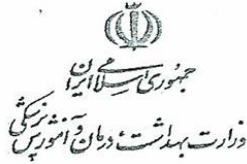 جمهوری اسلامی ایران
وزارت بهداشت، درمان و آموزش پزشکی